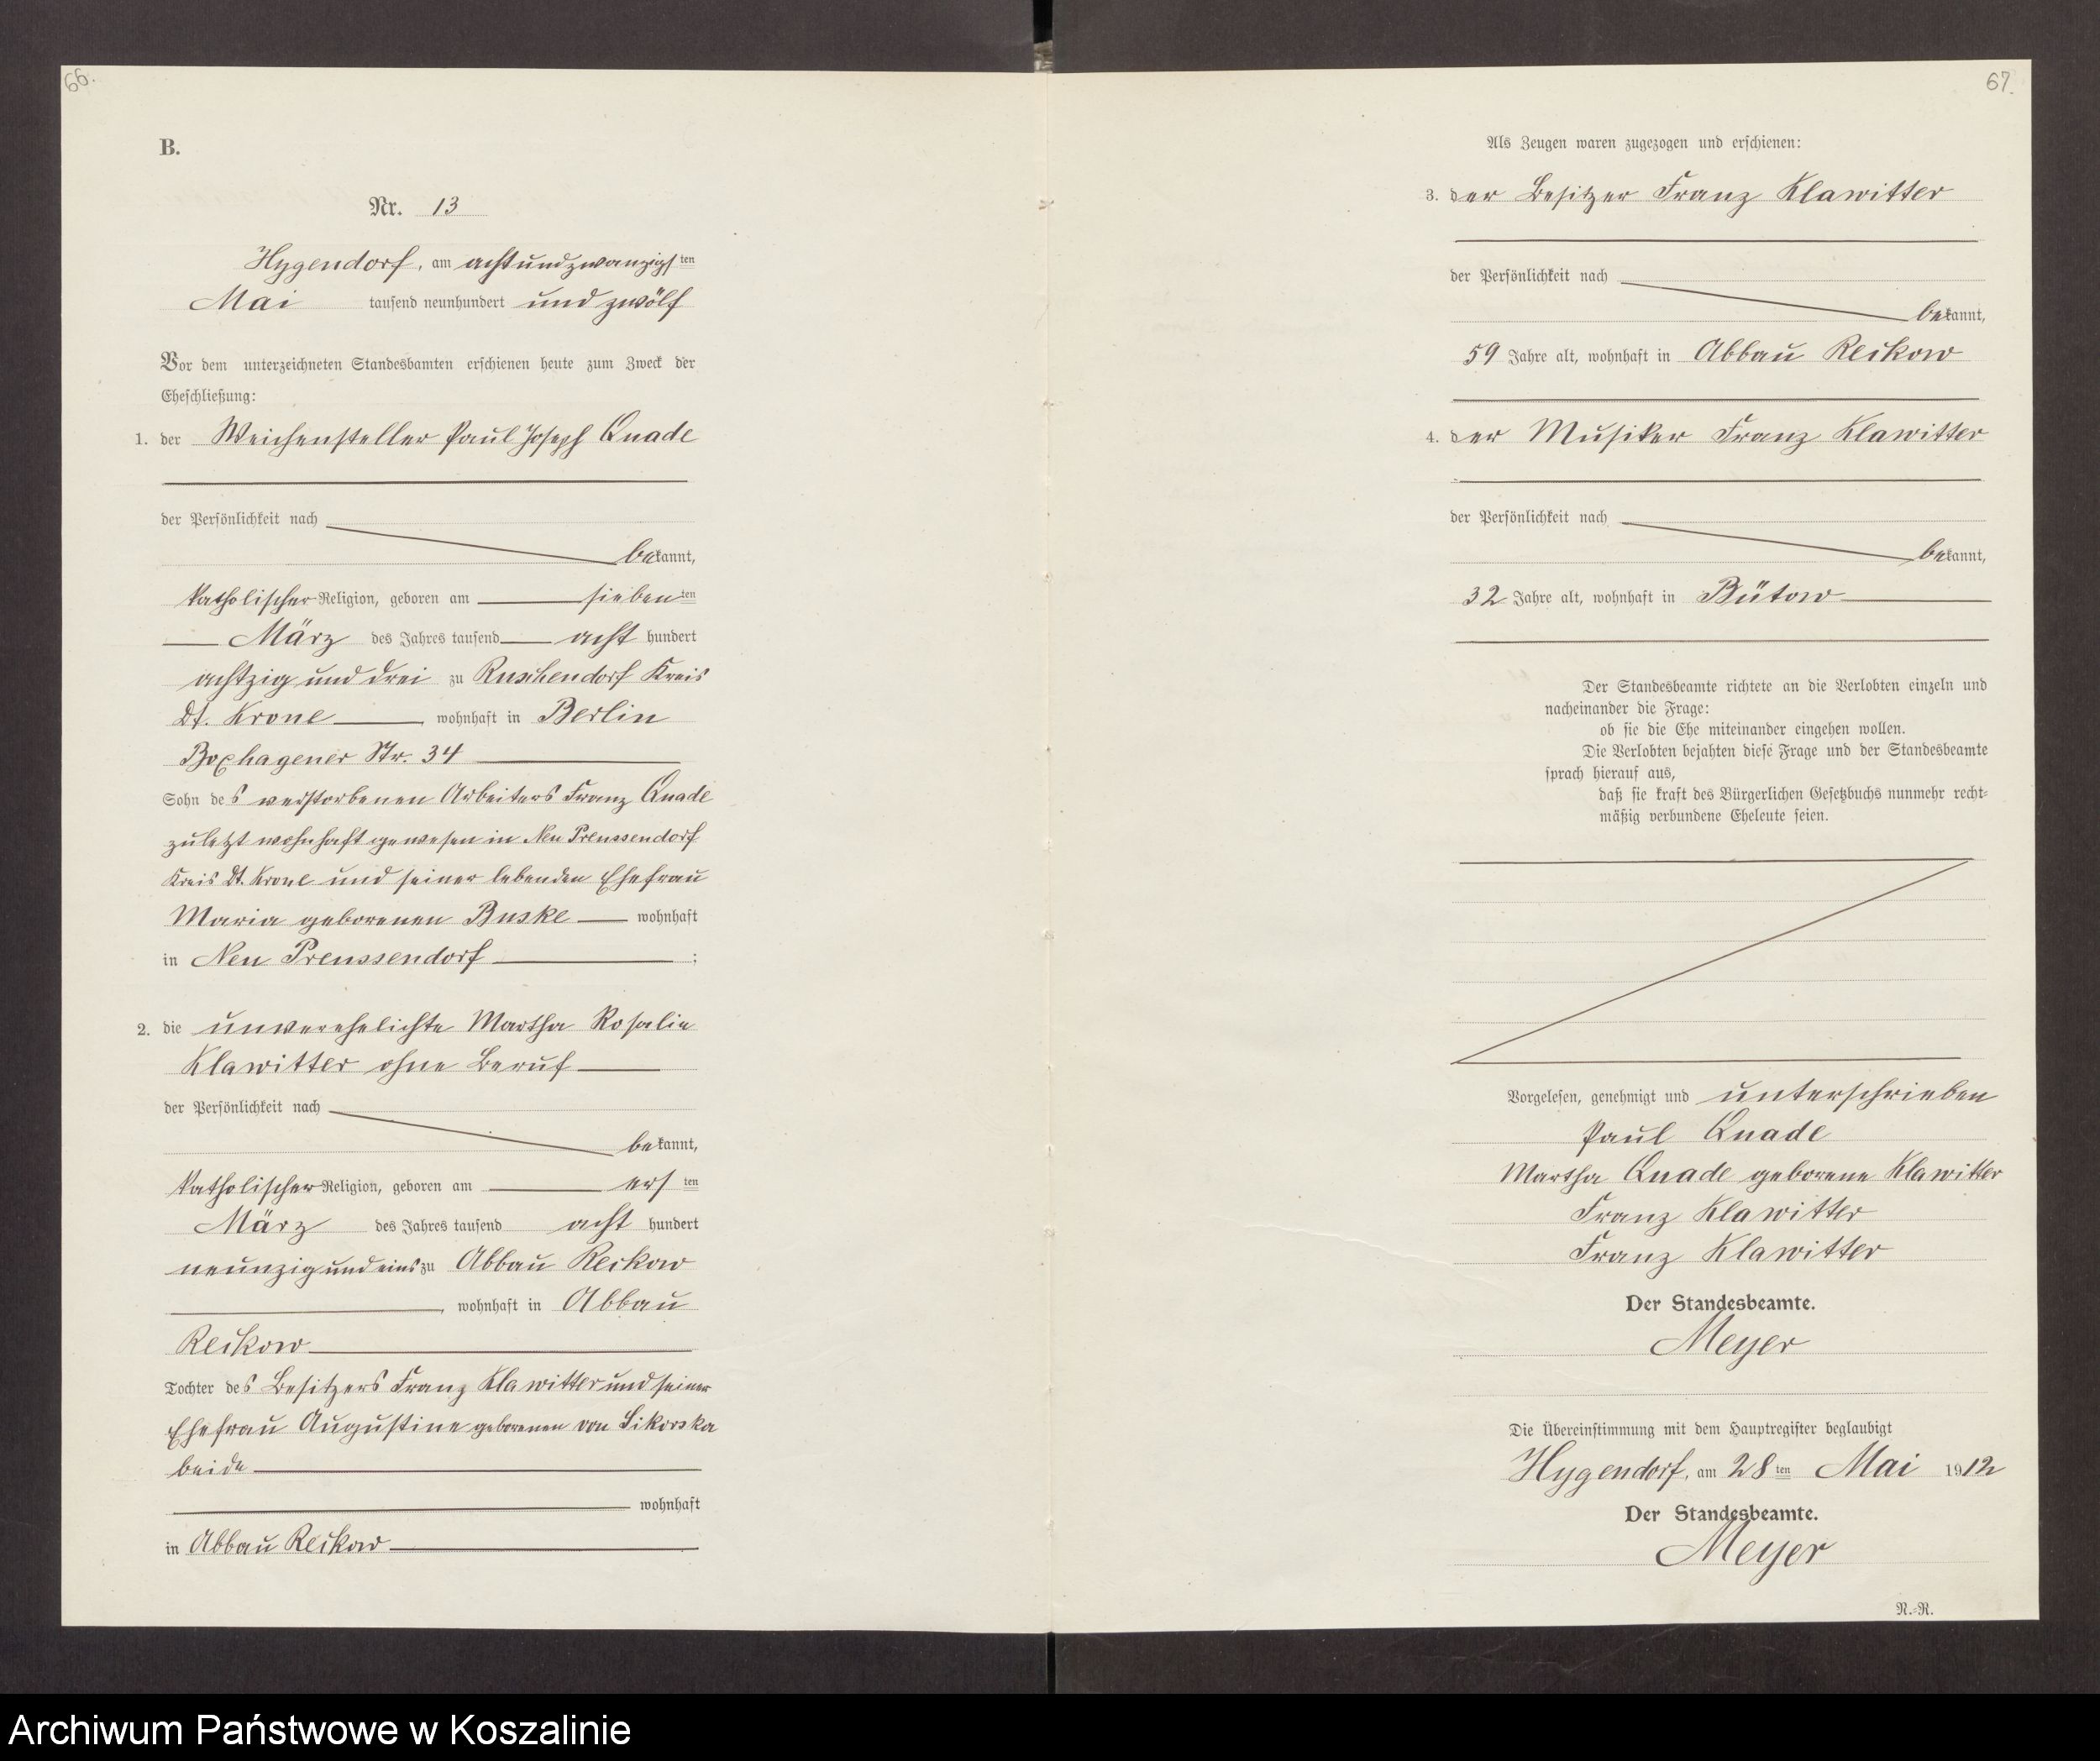 66.
B.
Nr. 13
Hygendorf, am achtundzwanzigsten
Mai tausend neunhundert und zwölf
Vor dem unterzeichneten Standesbamten erschienen heute zum Zweck der
Eheschließung:
1. der Weichensteller Paul Joseph Quade
der Persönlichkeit nach
bekannt,
katholischer Religion, geboren am siebenten
März des Jahres tausend acht hundert
achtzig und drei zu Ruschendorf Kreis
Dt. Krone, wohnhaft in Berlin
Boxhagener Str. 34
Sohn des verstorbenen Arbeiters Franz Quade
zuletzt wohnhaft gewesen in Neu Preussendorf
Kreis Dt. Krone und seiner lebenden Ehefrau
Maria geborenen Buske wohnhaft
in Neu Preussendorf ;
2. die unverehelichte Martha Rosalie
Klawitter ohne Beruf
der Persönlichkeit nach
bekannt,
katholischer Religion, geboren am ersten
März des Jahres tausend acht hundert
neunzig und eins zu Abbau Reckow
, wohnhaft in Abbau
Reckow
Tochter des Besitzers Franz Klawitter und seiner
Ehefrau Augustine geborenen von Sikorska
beide
wohnhaft
in Abbau Reckow
67.
Als Zeugen waren zugezogen und erschienen:
3. der Besitzer Franz Klawitter
der Persönlichkeit nach
bekannt,
59 Jahre alt, wohnhaft in Abbau Reckow
4. der Musiker Franz Klawitter
der Persönlichkeit nach
bekannt,
32 Jahre alt, wohnhaft in Bütow
Der Standesbeamte richtete an die Verlobten einzeln und
nacheinander die Frage:
ob sie die Ehe miteinander eingehen wollen.
Die Verlobten bejahten diese Frage und der Standesbeamte
sprach hierauf aus,
daß sie kraft des Bürgerlichen Gesetzbuchs nunmehr recht-
mäßig verbundene Eheleute seien.
Vorgelesen, genehmigt und unterschrieben
Paul Quade
Martha Quade geborene Klawitter
Franz Klawitter
Franz Klawitter
Der Standesbeamte.
Meyer
Die Übereinstimmung mit dem Hauptregister beglaubigt
Hygendorf, am 28ten Mai 1912
Der Standesbeamte.
Meyer
N.-R.
Archiwum Państwowe w Koszalinie